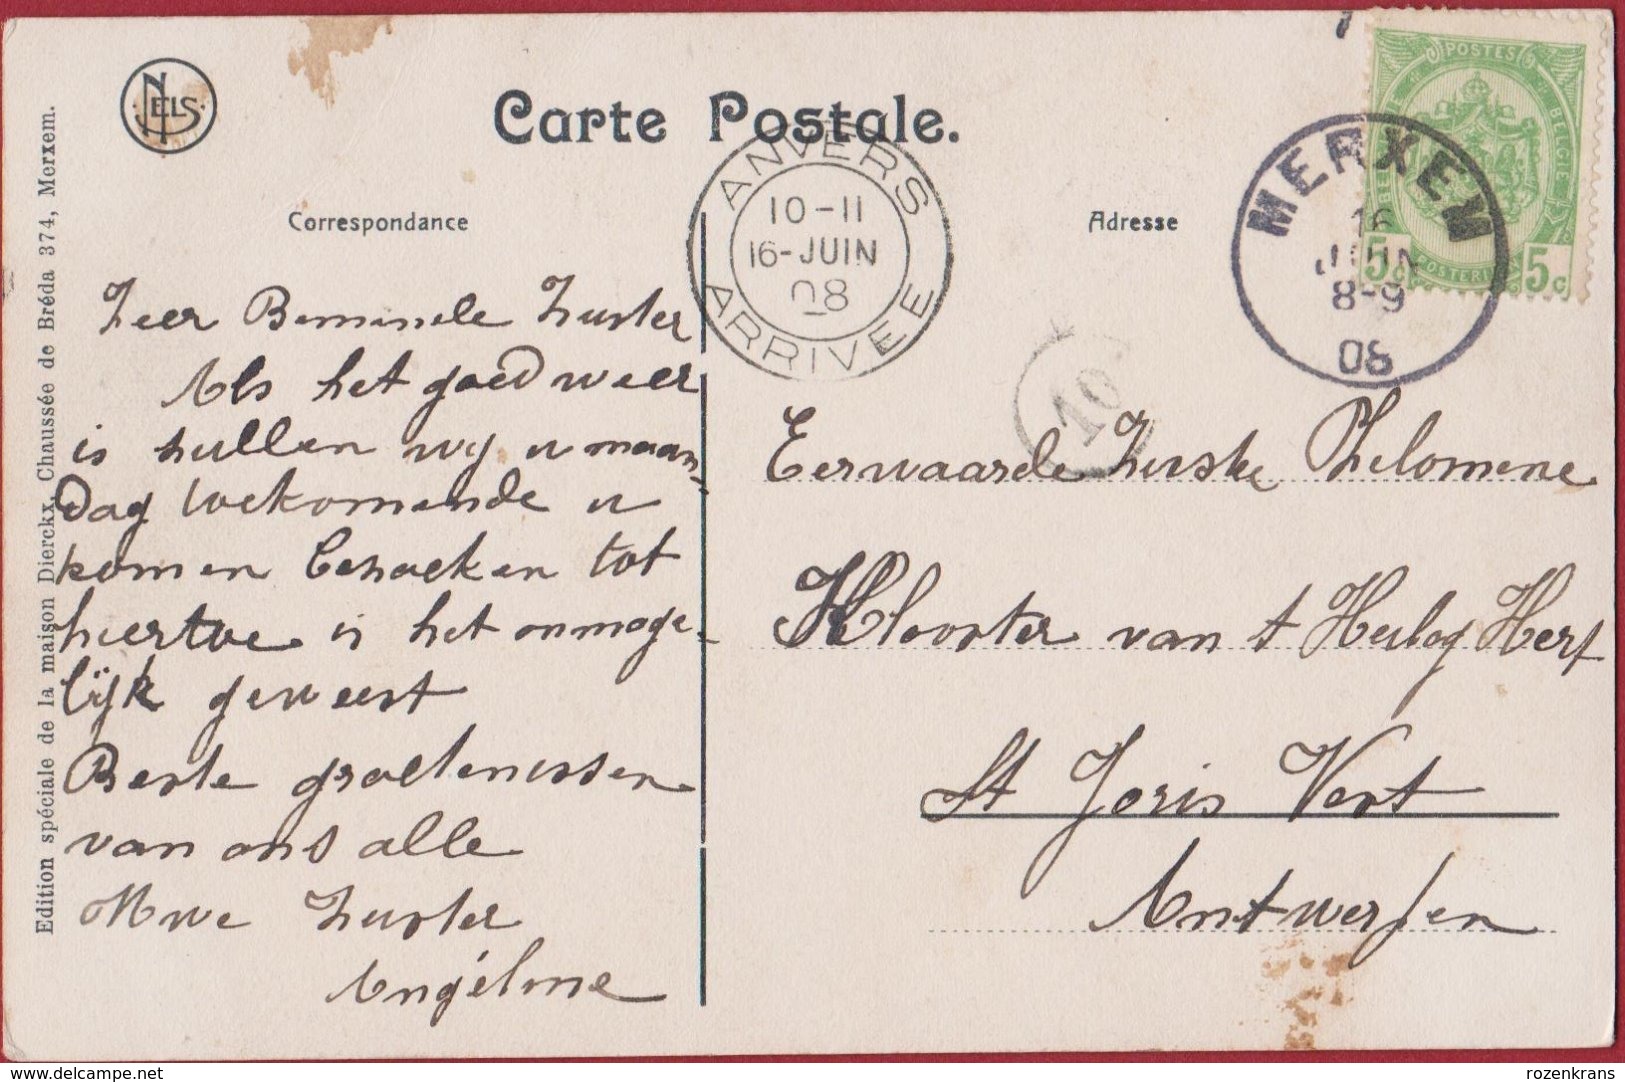 NELS
Carte Postale.
Correspondance
Adresse
ANVERS
10-11
16-JUIN
08
ARRIVÉE
MERXEM
16
JUIN
8-9
08
POSTES
BELGIE
5c POSTERIJEN 5c
10
Edition spéciale de la maison Dierckx, Chaussée de Bréda 374, Merxem.
Zeer Beminde Zuster
Als het goed weer
is zullen wij u maan-
dag toekomende u
komen bezoeken tot
hiertoe is het onmoge-
lijk geweest
Beste groetenissen
van ons alle
Uwe Zuster
Angéline
Eerwaarde Zuster Philomene
Klooster van t Heilog Hert
St Joris Vest
Antwerpen
www.delcampe.net
rozenkrans